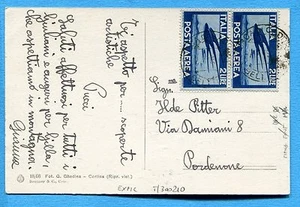 Ti aspetto per... scoperte
artistiche
Pucci
Saluti affettuosi per tutti i
Giuliani e auguri per Lilla,
che aspettiamo in montagna
Gianna
ITALIA
POSTA AEREA
2 LIRE
ITALIA
POSTA AEREA
2 LIRE
Sig.
Ilde Pitter
Via Damiani 8
Pordenone
Fot. G. Ghedina - Cortina (Ripr. viet.)